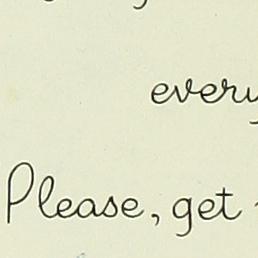 every
Please, get